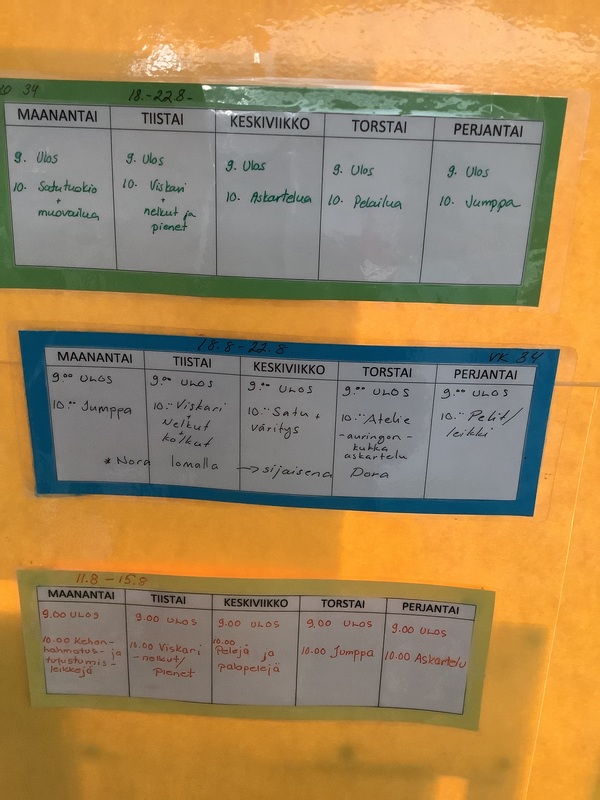 34
18.-22.8-
MAANANTAI TIISTAI KESKIVIIKKO TORSTAI PERJANTAI
9. Ulos
10. Satutuokio
+
muovailua
9. Ulos
10. Viskari
+
nelkut ja
pienet
9. Ulos
10. Askartelua
9. Ulos
10. Pelailua
9. Ulos
10. Jumppa
18.8-22.8
VK 34
MAANANTAI TIISTAI KESKIVIIKKO TORSTAI PERJANTAI
9.00 ULOS
10.00 Jumppa
9.00 ULOS
10.00 Viskari
Nelkut
kolkut
9.00 ULOS
10.00 Satu +
väritys
9.00 ULOS
10.00 Atelie
-auringon-
kukka
askartelu
9.00 ULOS
10.00 Pelit/
leikki
* Nora lomalla → sijaisena Dora
11.8 - 15.8
MAANANTAI TIISTAI KESKIVIIKKO TORSTAI PERJANTAI
9.00 ULOS
10.00 Kehon-
hahmotus- ja
tutustumis-
leikkejä
9.00 ULOS
10.00 Viskari
- nelkut/
Pienet
9.00 ULOS
10.00
Pelejä ja
palapelejä
9.00 ULOS
10.00 Jumppa
9.00 ULOS
10.00 Askartelu